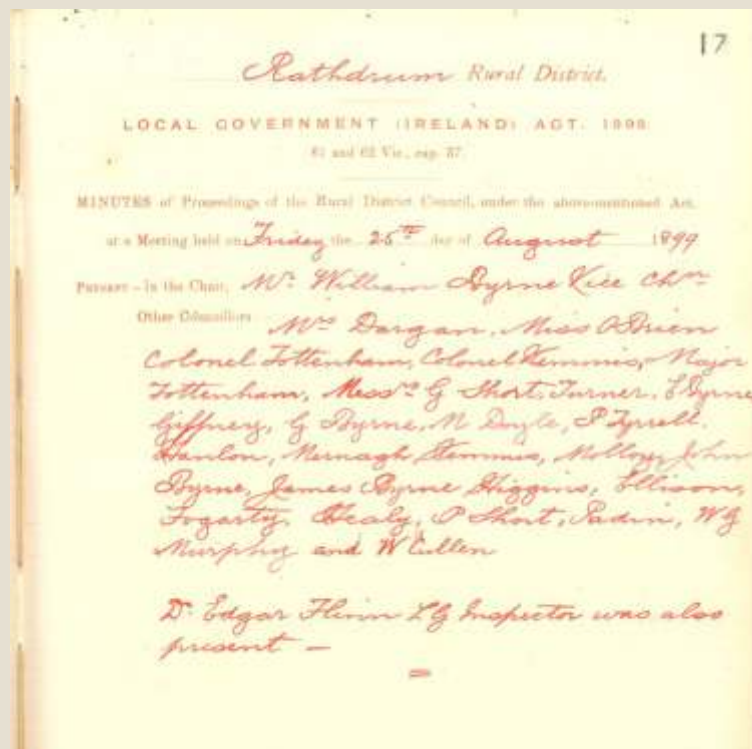 17
Rathdrum Rural District.
LOCAL GOVERNMENT (IRELAND) ACT, 1898
61 and 62 Vic., cap. 37.
MINUTES of Proceedings of the Rural District Council, under the above-mentioned Act,
at a Meeting held on Friday the 25th day of August 1899
PRESENT – In the Chair, Mr William Byrne Vice Chmn
Other Councillors Mrs Dargan, Miss OBrien
Colonel Tottenham, Colonel Kemmis, Major
Tottenham, Messrs G Short, Turner, E Byrne
Giffney, G Byrne, M Doyle, P Tyrrell.
Hanlon, Mernagh Kemmis, Molloy, John
Byrne, James Byrne Higgins, Ellison,
Fogarty, Healy, P Short, WG
Murphy and W Cullen
Dr Edgar Flinn LG Inspector was also
present –